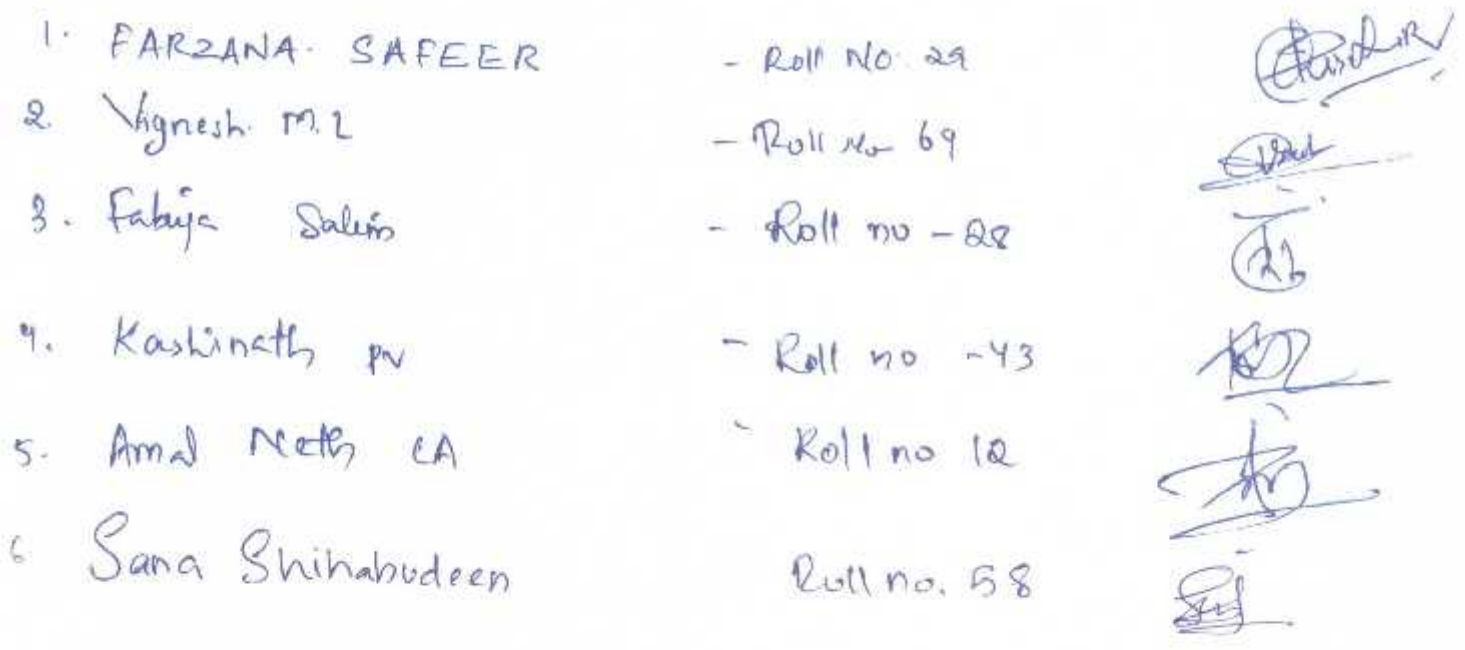 1. FARZANA. SAFEER - Roll No. 29
2. Vignesh. M.L - Roll No 69
3. Fabija Salim - Roll no - 28
4. Kashinath PV - Roll no - 43
5. Amal Nath CA - Roll no 12
6 Sana Shihabudeen Roll no. 58